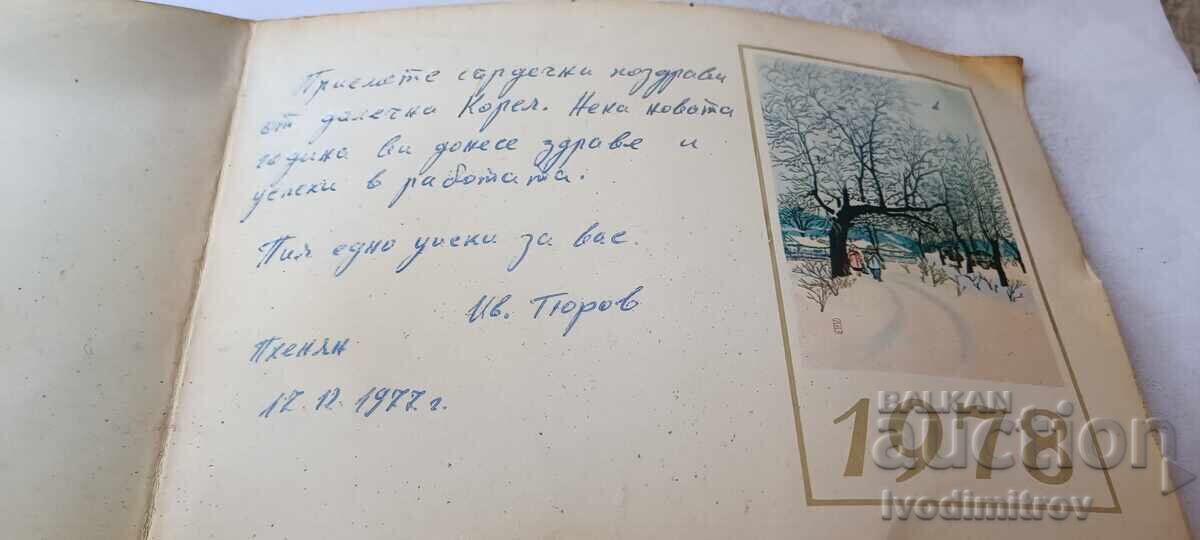 Приемете сърдечни поздрави
от далечна Корея. Нека новата
година ви донесе здраве и
успехи в работата.
Пия едно уиски за вас.
Ив. Тюров
Пхенян
17.12.1977 г.
1978
BALKAN
auction
Ivodimitrov